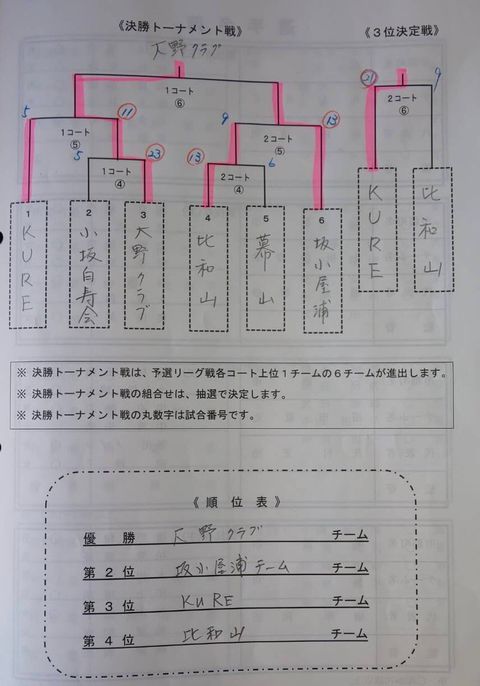 《決勝トーナメント戦》 《３位決定戦》
大野クラブ
21 9
1コート
⑥
2コート
⑥
5 11 9 13
1コート
⑤
2コート
⑤
5 23 13 6
1コート
④
2コート
④
1 2 3 4 5 6
KURE
小坂白寿会
大野クラブ
比和山
幕山
坂小屋浦
KURE
比和山
※ 決勝トーナメント戦は、予選リーグ戦各コート上位１チームの６チームが進出します。
※ 決勝トーナメント戦の組合せは、抽選で決定します。
※ 決勝トーナメント戦の丸数字は試合番号です。
《 順 位 表 》
優 勝 大野クラブ チーム
第 2 位 坂小屋浦チーム チーム
第 3 位 KURE チーム
第 4 位 比和山 チーム